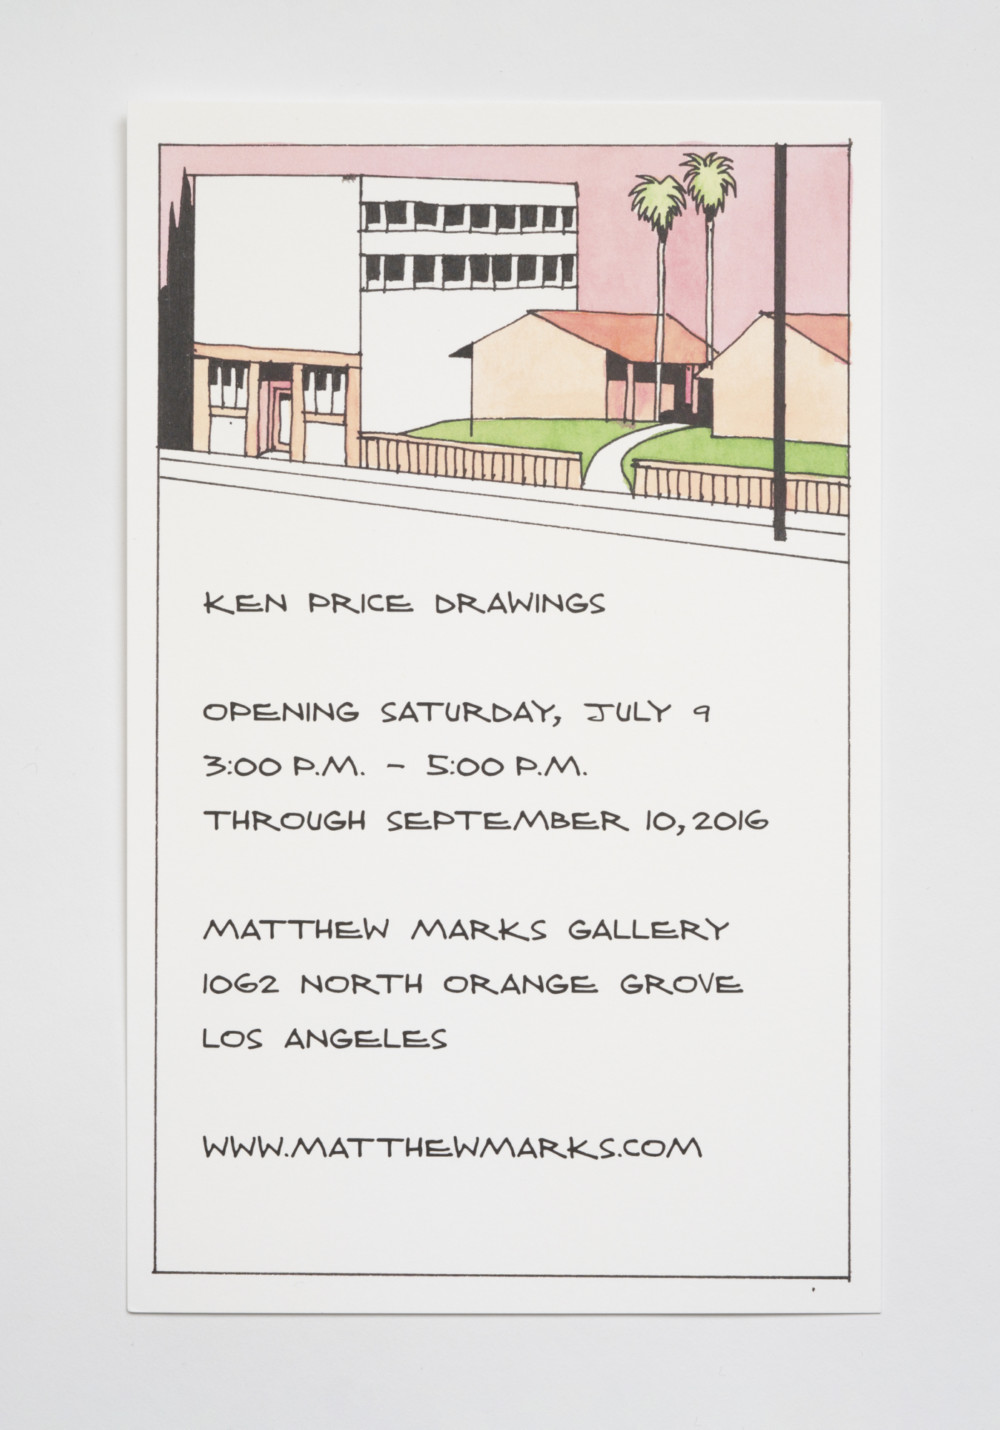 KEN PRICE DRAWINGS
OPENING SATURDAY, JULY 9
3:00 P.M. - 5:00 P.M.
THROUGH SEPTEMBER 10, 2016
MATTHEW MARKS GALLERY
1062 NORTH ORANGE GROVE
LOS ANGELES
WWW.MATTHEWMARKS.COM